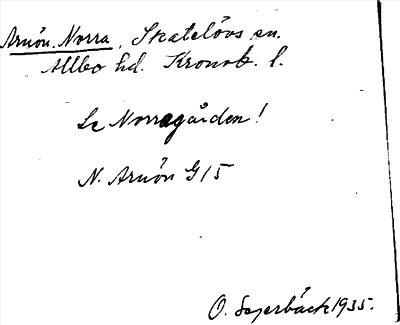 Arnön. Norra, Skatelövs sn.
Allbo hd. Kronob. l.
Se Norregården!
N. Arnön G15
O. Sagerbäck 1935.